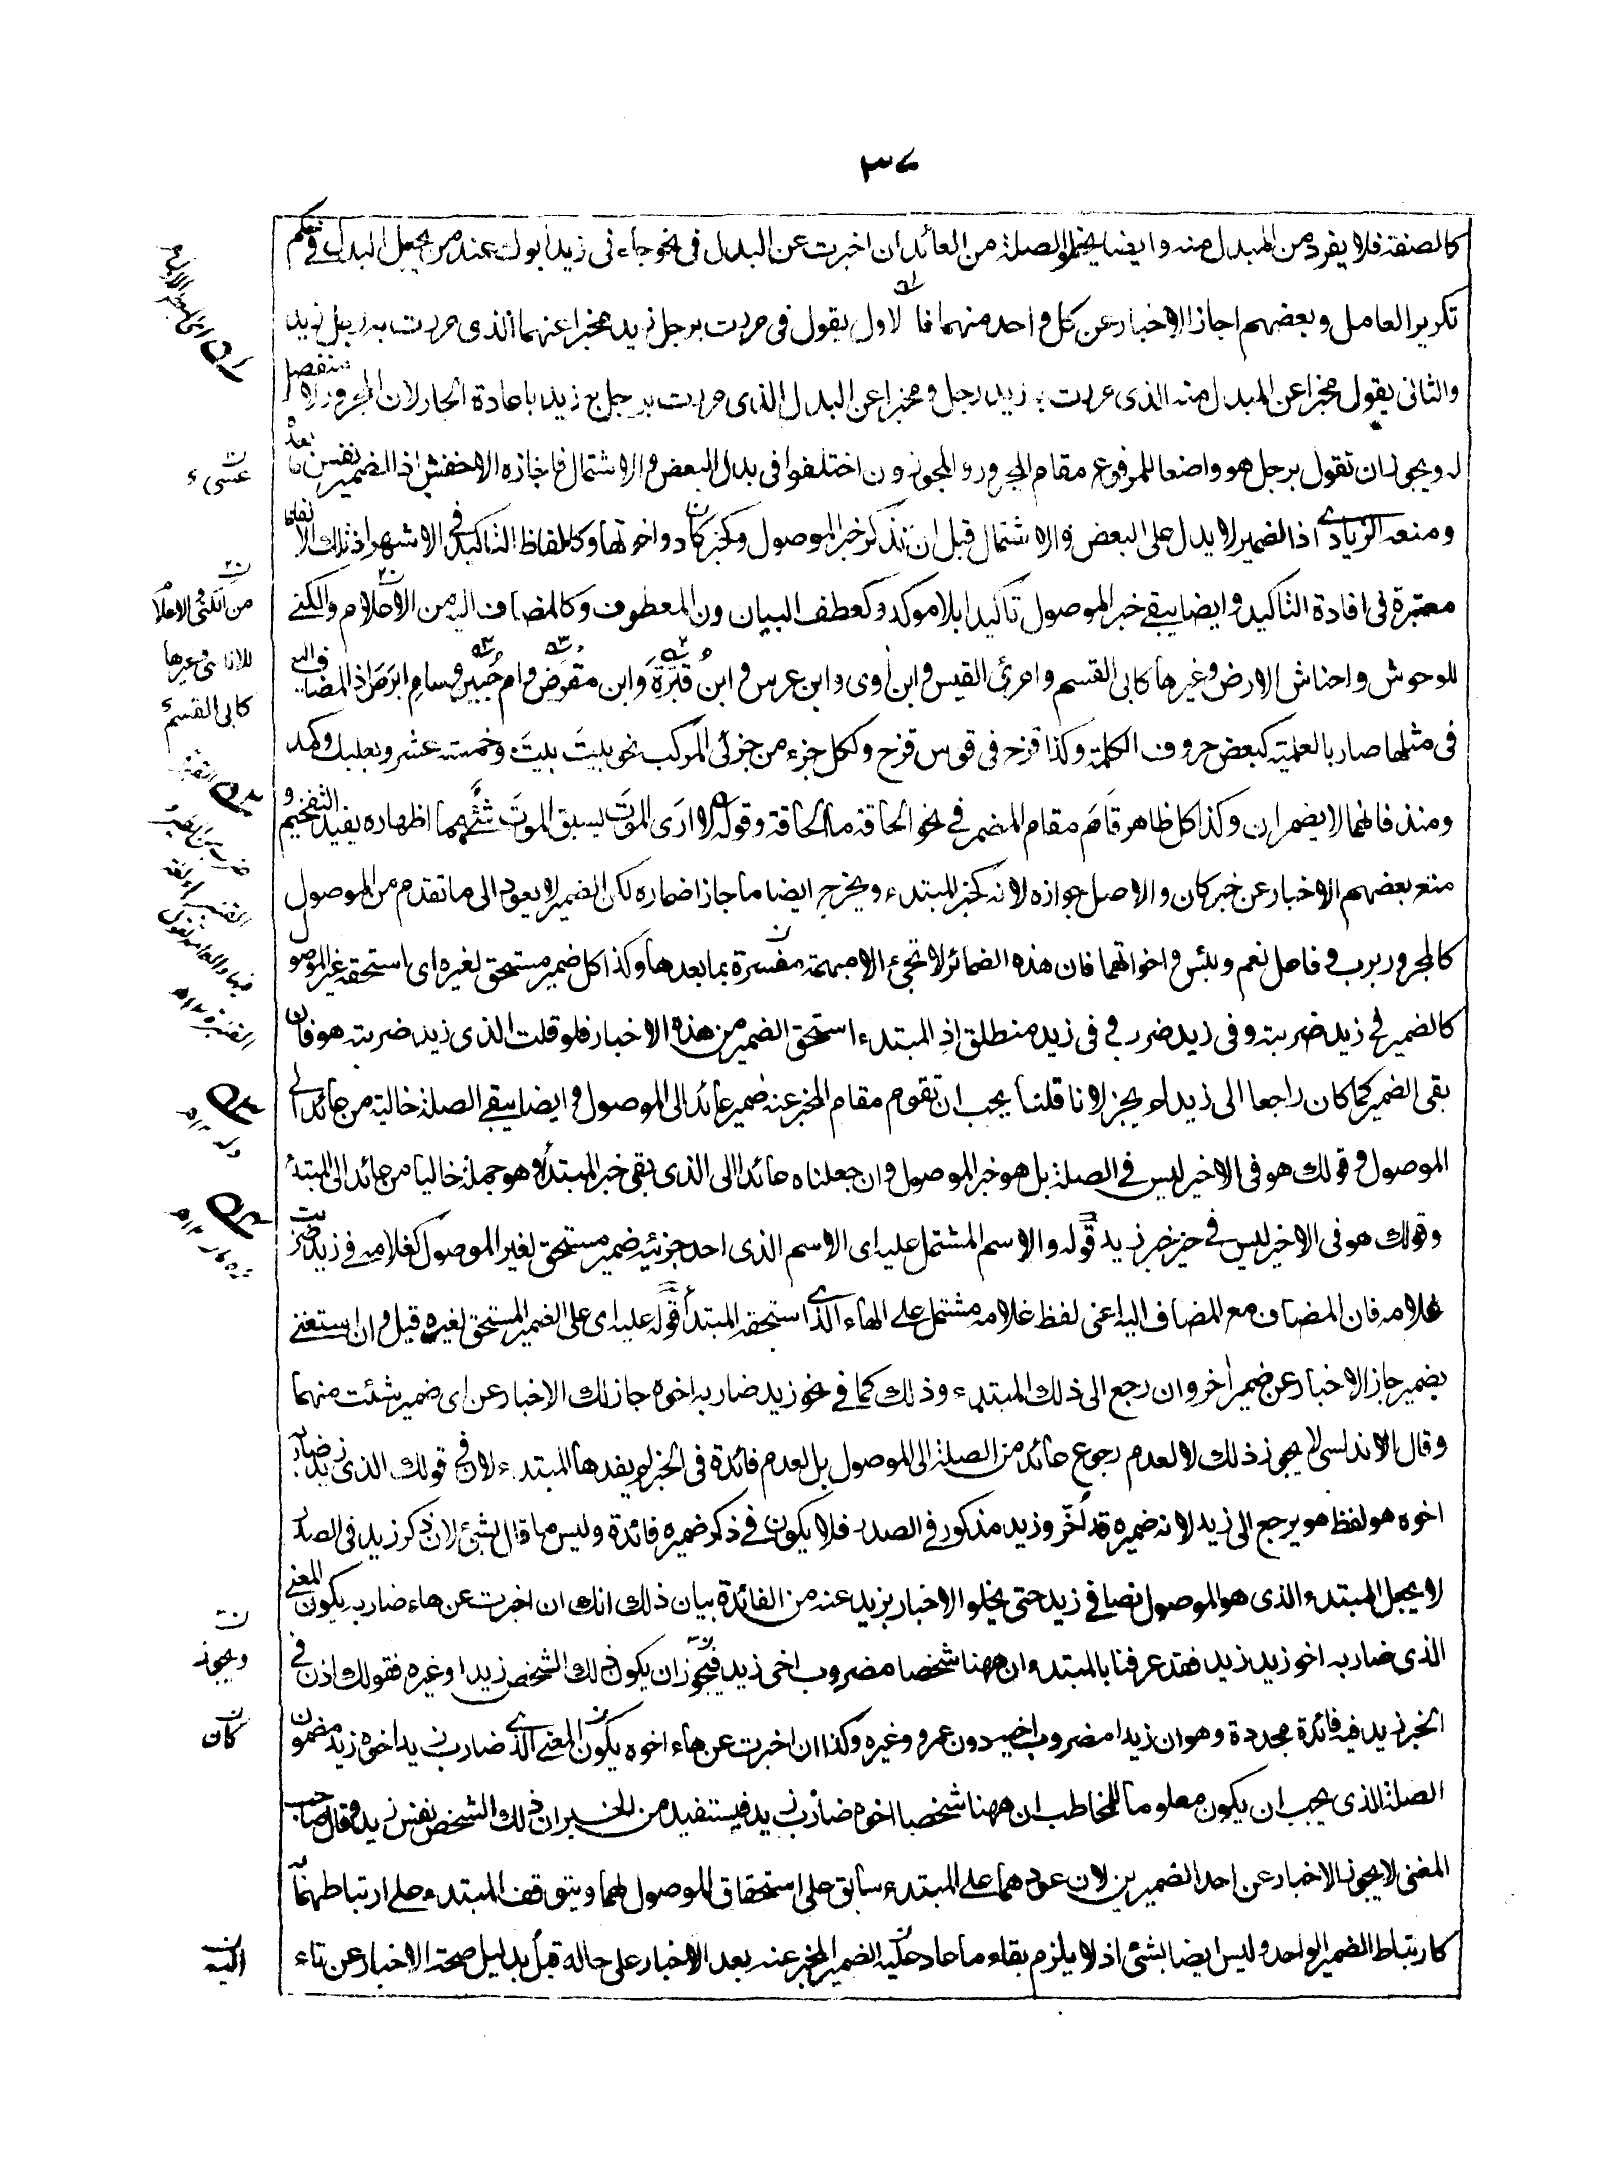 ٣٧
كالصفة فلا يفرد من المبدل منه وايضا يخلو الصلة من العائد ان اخبرت عن البدل فى نحو جاءنى زيد ابوك عند من يجعل البدل فى حكم
تكرير العامل وبعضهم اجاز الاخبار عن كل واحد منهما فالاول يقول فى مررت برجل زيد مخبرا عنهما الذى مررت به رجل زيد
والثانى يقول مخبرا عن المبدل منه الذى مررت به زيد رجل ومخبرا عن البدل الذى مررت برجل به زيد باعادة الجار لان المجرور لا منفصل
له ويجوز ان تقول برجل هو واضعا للمرفوع مقام المجرور والمجوزون اختلفوا فى بدل البعض والاشتمال فاجازه الاخفش اذ الضمير نفس ما بعده
ومنعه الزيادى اذ الضمير لا يدل على البعض والاشتمال قبل ان تذكر خبر الموصول وكخبر كاد واخواتها وكالفاظ التاكيد فى الاشهر اذ تلك الالفاظ
معتبرة فى افادة التاكيد وايضا يبقى خبر الموصول تاكيدا بلا موكد وكعطف البيان دون المعطوف وكالمضاف اليه من الاعلام والكنى
للوحوش واحناش الارض وغيرها كابى القسم وامرئ القيس وابن أوى وابن عرس وابن قِتَرَةَ وابن مقرض وام حُبَين وسام ابرص اذ المضاف اليه
فى مثلها صار بالعلمية كبعض حروف الكلمة وكذا قزح فى قوس قزح وككل جزء من جزئى المركب نحو بيتَ بيتَ وخمسة عشر وبعلبك وكمذ
ومنذ فانهما لا يضمران وكذا كل ظاهر قام مقام المضمر فى نحو الحاقة ما الحاقة وقوله لا ارى الموتَ يسبق الموتَ شئ مما اظهاره يفيد التفخيم و
منع بعضهم الاخبار عن خبر كان والاصل جوازه لانه كخبر المبتدء ويخرج ايضا ما جاز اضماره لكن الضمير لا يعود الى ما تقدم من الموصول
كالمجرور برب وفاعل نعم وبئس واخواتهما فان هذه الضمائر لا تجئ الا مبهمة مفسرة بما بعدها وكذا كل ضمير مستحق لغيره اى استحقه غير الموصول
كالضمير فى زيد ضربته وفى زيد ضرب وفى زيد منطلق اذ المبتدء استحق الضمير من هذه الاخبار فلو قلت الذى زيد ضربته هو فان
بقى الضمير كما كان راجعا الى زيد لم يجز لانا قلنا يجب ان تقوم مقام المخبر عنه ضمير عائد الى الموصول وايضا يبقى الصلة خالية من عائد الى
الموصول وقولك هو فى الاخير ليس فى الصلة بل هو خبر الموصول وان جعلناه عائدا الى الذى بقى خبر المبتدأ وهو جملة خاليا من عائد الى المبتدأ
وقولك هو فى الاخير ليس فى حيز خبر زيد قوله والاسم المشتمل عليه اى الاسم الذى احد جزئيه ضمير مستحق لغير الموصول كغلامه فى زيد ضربت
غلامه فان المضاف مع المضاف اليه اعنى لفظ غلامه مشتمل على الهاء الذى استحقه المبتدأ قوله عليه اى على الضمير المستحق لغيره قيل وان استغنى
بضمير جاز الاخبار عن ضمير اخر وان رجع الى ذلك المبتدء وذلك كما فى نحو زيد ضاربه اخوه جاز لك الاخبار عن اى ضمير شئت منهما
وقال الاندلسى لا يجوز ذلك لا لعدم رجوع عائد من الصلة الى الموصول بل لعدم فائدة فى الخبر لم يفدها المبتدء لان فى قولك الذى زيد ضاربه
اخوه هو لفظ هو يرجع الى زيد لانه ضميره قد أخّر وزيد مذكور فى الصدر فلا يكون فى ذكر ضميره فائدة وليس ما قال بشئ لان ذكر زيد فى الصدر
لا يجعل المبتدء الذى هو الموصول نصا فى زيد حتى يخلو الاخبار بزيد عنه من الفائدة بيان ذلك انك ان اخبرت عن هاء ضاربه يكون المعنى
الذى ضاربه اخو زيد زيد فقد عرفنا بالمبتدء ان ههنا شخصا مضروب اخى زيد فيجوز ان يكون ذلك الشخص زيدا وغيره فقولك اذن فى
الخبر زيد فيه فائدة مجددة وهو ان زيدا مضروب اخيه دون عمرو وغيره وكذا ان اخبرت عن هاء اخوه يكون المعنى الذى ضارب زيد اخوه زيد مضمون
الصلة الذى يجب ان يكون معلوما للمخاطب ان ههنا شخصا اخوه ضارب زيد فيستفيد من الخبر ان ذلك الشخص نفس زيد وقال صاحب
المغنى لا يجوز الاخبار عن احد الضميرين لان عودهما على المبتدء سابق على استحقاق الموصول لهما ويتوقف المبتدء على ارتباطهما
كارتباط الضمير الواحد وليس ايضا بشئ اذ لا يلزم بقاء ما عاد عليه الضمير المخبر عنه بعد الاخبار على حاله قبل بدليل صحة الاخبار عن تاء
عسى
من الكنى والاعلام
للاناسى وغيرها
كابى القسم
ويجوز
كان
اليه